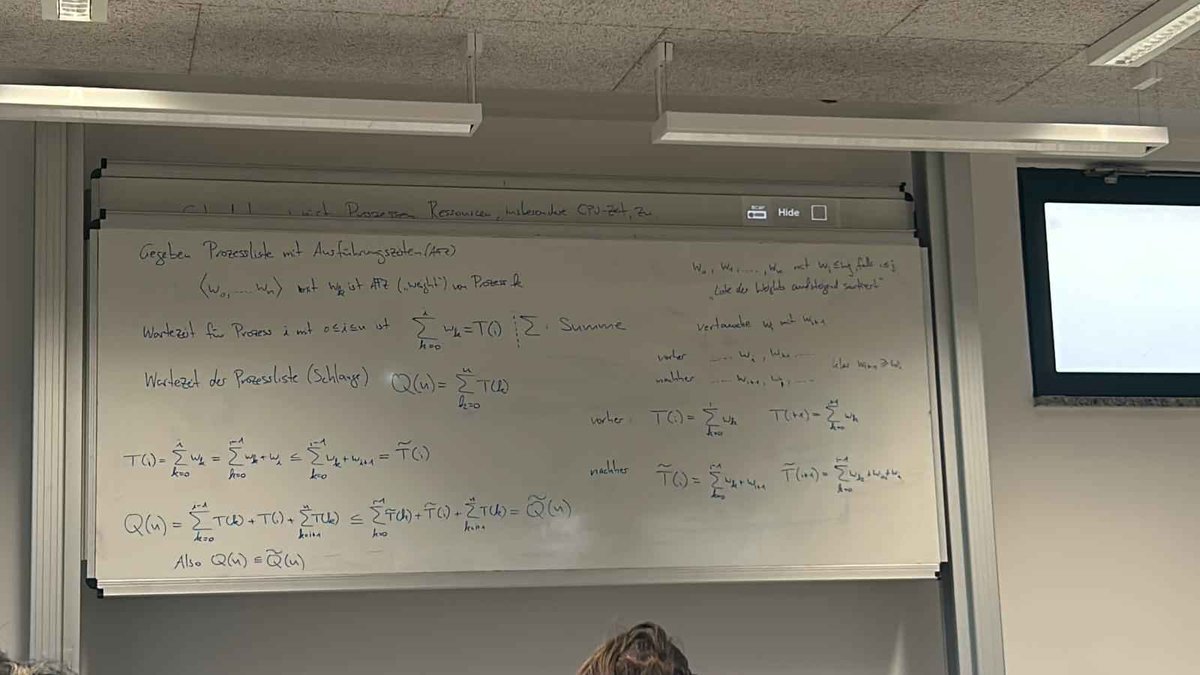 mit Prozessen Ressourcen, insbesondere CPU-Zeit, zu
Hide
Gegeben Prozessliste mit Ausführungszeiten (AFZ)
⟨w₀, .... wₙ⟩ mit wₖ ist AFZ („weight“) von Prozess k
Wartezeit für Prozess i mit 0≤i≤n ist ∑_{k=0}^{i} wₖ = T(i) ∑ : Summe
Wartezeit der Prozessliste (Schlange) Q(n) = ∑_{k=0}^{n} T(k)
T(i) = ∑_{k=0}^{i} wₖ = ∑_{k=0}^{i-1} wₖ + wᵢ ≤ ∑_{k=0}^{i-1} wₖ + wᵢ₊₁ = T̃(i)
Q(n) = ∑_{k=0}^{i-1} T(k) + T(i) + ∑_{k=i+1}^{n} T(k) ≤ ∑_{k=0}^{i-1} T(k) + T̃(i) + ∑_{k=i+1}^{n} T(k) = Q̃(n)
Also Q(n) ≤ Q̃(n)
w₀, w₁, ...., wₙ mit wᵢ ≤ wⱼ falls i≤j
„Liste der Weights aufsteigend sortiert“
vertausche wᵢ mit wᵢ₊₁
vorher .... wᵢ, wᵢ₊₁ ....
nachher .... wᵢ₊₁, wᵢ, ....
wᵢ₊₁ ≥ wᵢ
vorher: T(i) = ∑_{k=0}^{i} wₖ T(i+1) = ∑_{k=0}^{i+1} wₖ
nachher T̃(i) = ∑_{k=0}^{i-1} wₖ + wᵢ₊₁ T̃(i+1) = ∑_{k=0}^{i-1} wₖ + wᵢ₊₁ + wᵢ